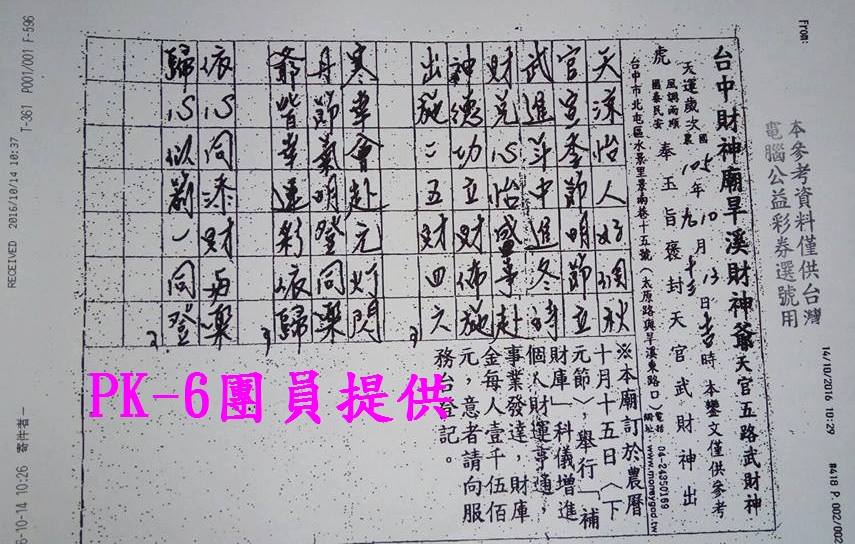 From:
14/10/2016 10:29
#418 P.002/002
本參考資料僅供台灣
電腦公益彩券選號用
台中財神廟旱溪財神爺天官五路武財神
天運歲次 國 105年10月13日吉時 本鑾文僅供參考
虎 風調雨順 國泰民安 奉玉旨褒封天官武財神出
台中市北屯區水景里景南巷十五號(太原路與旱溪東路口) 電話 04-24350169 網址 www.moneygod.tw
天涼怡人好個秋
官宣季節明節立
武進斗中進冬時
財兌心怡盛事赴
神德功立財佈施
出施二五財四六
寒幸會赴元灯閃
丹節氣明登同樂
爺皆幸運彩依歸
依心同添財與樂
歸心似箭一同登
※本廟訂於農曆
十月十五日〈下
元節〉,舉行「補
財庫」科儀增進
個人財運亨通,
事業發達,財庫
金每人壹千伍佰
元,意者請向服
務台登記。
PK-6團員提供
RECEIVED 2016/10/14 10:37
T-361 P001/001 F-596
6-10-14 10:26 寄件者-